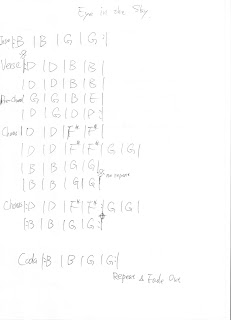 Eye in the Sky
Intro |:B | B | G | G :|
Verse |: D | D | B | B |
| D | D | B | B |
G | G | B | E |
| D | G | D |
Chorus | D | D | F# | F# |
| D | D | F# | F# | G | G |
| B | B | G | G
| B | B | G | G |
Chorus |: D | D | F# | F# | G | G |
| B | B | G | G :|
Coda |: B | B | G | G :|
Repeat & Fade Out